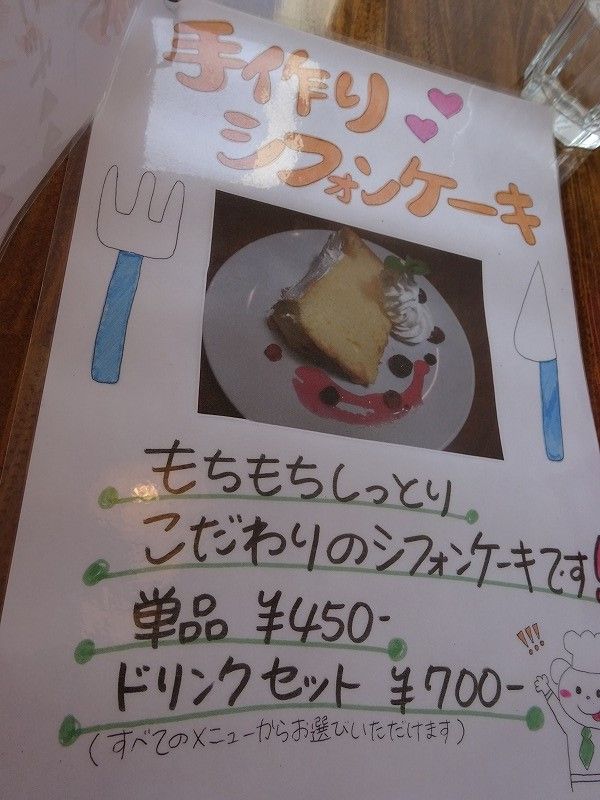 手作り
シフォンケーキ
もちもちしっとり
こだわりのシフォンケーキです!
単品 ¥450-
ドリンクセット ¥700-
(すべてのメニューからお選びいただけます)
!!!